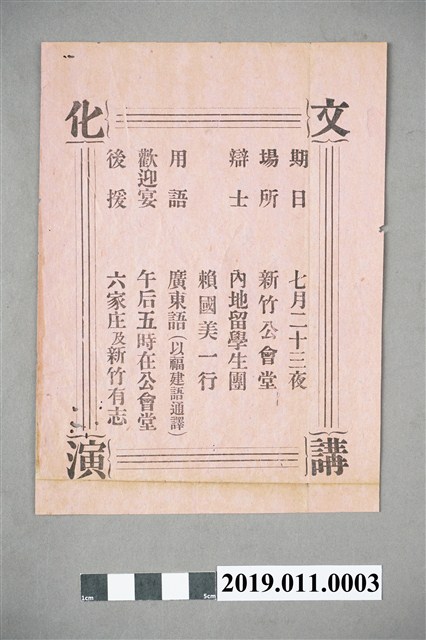 文化講演
期日 七月二十三夜
場所 新竹公會堂
辯士 內地留學生團
賴國美一行
用語 廣東語(以福建語通譯)
歡迎宴 午后五時在公會堂
後援 六家庄及新竹有志
1cm 5cm
2019.011.0003